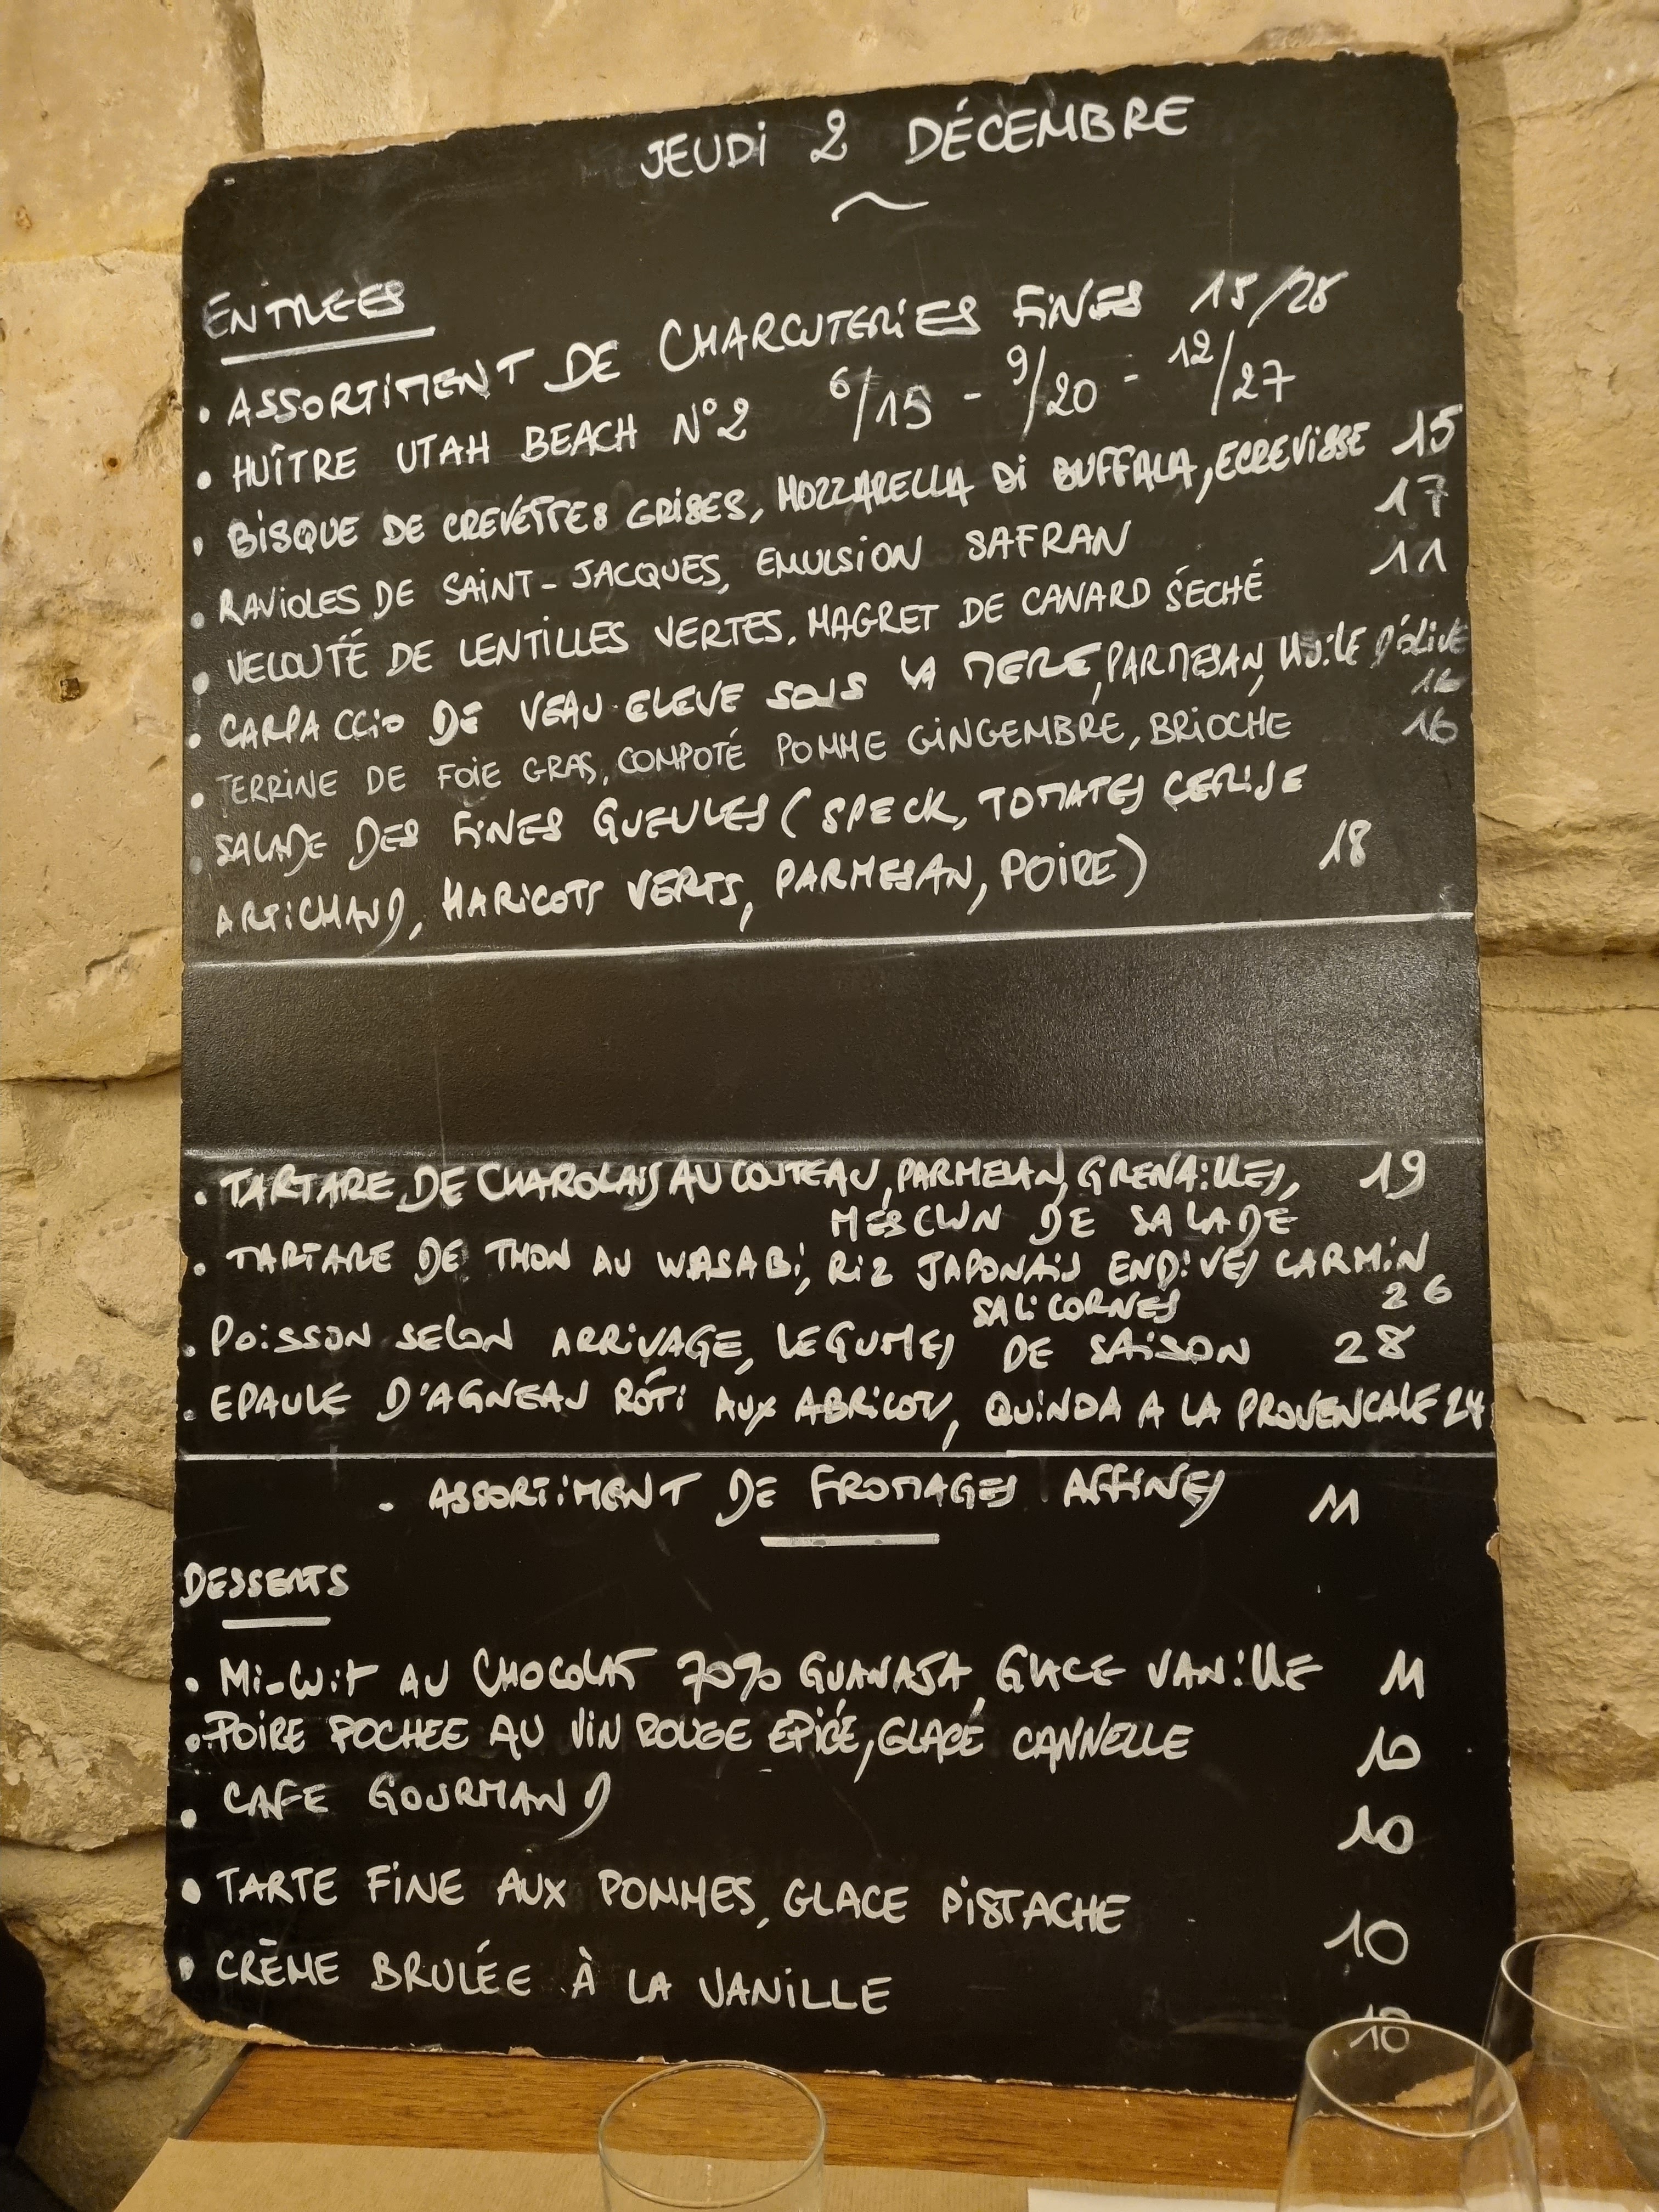 JEUDI 2 DÉCEMBRE
ENTREES
• ASSORTIMENT DE CHARCUTERIES FINES 15/28
• HUÎTRE UTAH BEACH N°2 6/15 - 9/20 - 12/27
• BISQUE DE CREVETTES GRISES, MOZZARELLA DI BUFFALA, ECREVISSE 15
• RAVIOLES DE SAINT-JACQUES, EMULSION SAFRAN 17
• VELOUTÉ DE LENTILLES VERTES, MAGRET DE CANARD SÉCHÉ 11
• CARPACCIO DE VEAU ELEVE SOUS LA MERE, PARMESAN, HUILE D'OLIVE
16
• TERRINE DE FOIE GRAS, COMPOTÉ POMME GINGEMBRE, BRIOCHE 16
• SALADE DES FINES GUEULES (SPECK, TOMATES CERISE
ARTICHAUD, HARICOTS VERTS, PARMESAN, POIRE) 18
• TARTARE DE CHAROLAIS AU COUTEAU, PARMESAN, GRENAILLES, 19
MESCLUN DE SALADE
• TARTARE DE THON AU WASABI, RIZ JAPONAIS ENDIVES CARMIN
SALICORNES 26
• POISSON SELON ARRIVAGE, LEGUMES DE SAISON 28
• EPAULE D'AGNEAU RÔTI AUX ABRICOTS, QUINOA A LA PROVENCALE 24
- ASSORTIMENT DE FROMAGES AFFINES 11
DESSERTS
• MI-CUIT AU CHOCOLAT 70% GUANAJA, GLACE VANILLE 11
• POIRE POCHEE AU VIN ROUGE EPICÉ, GLACÉ CANNELLE 10
• CAFE GOURMAND 10
• TARTE FINE AUX POMMES, GLACE PISTACHE 10
• CRÈME BRULÉE À LA VANILLE 10